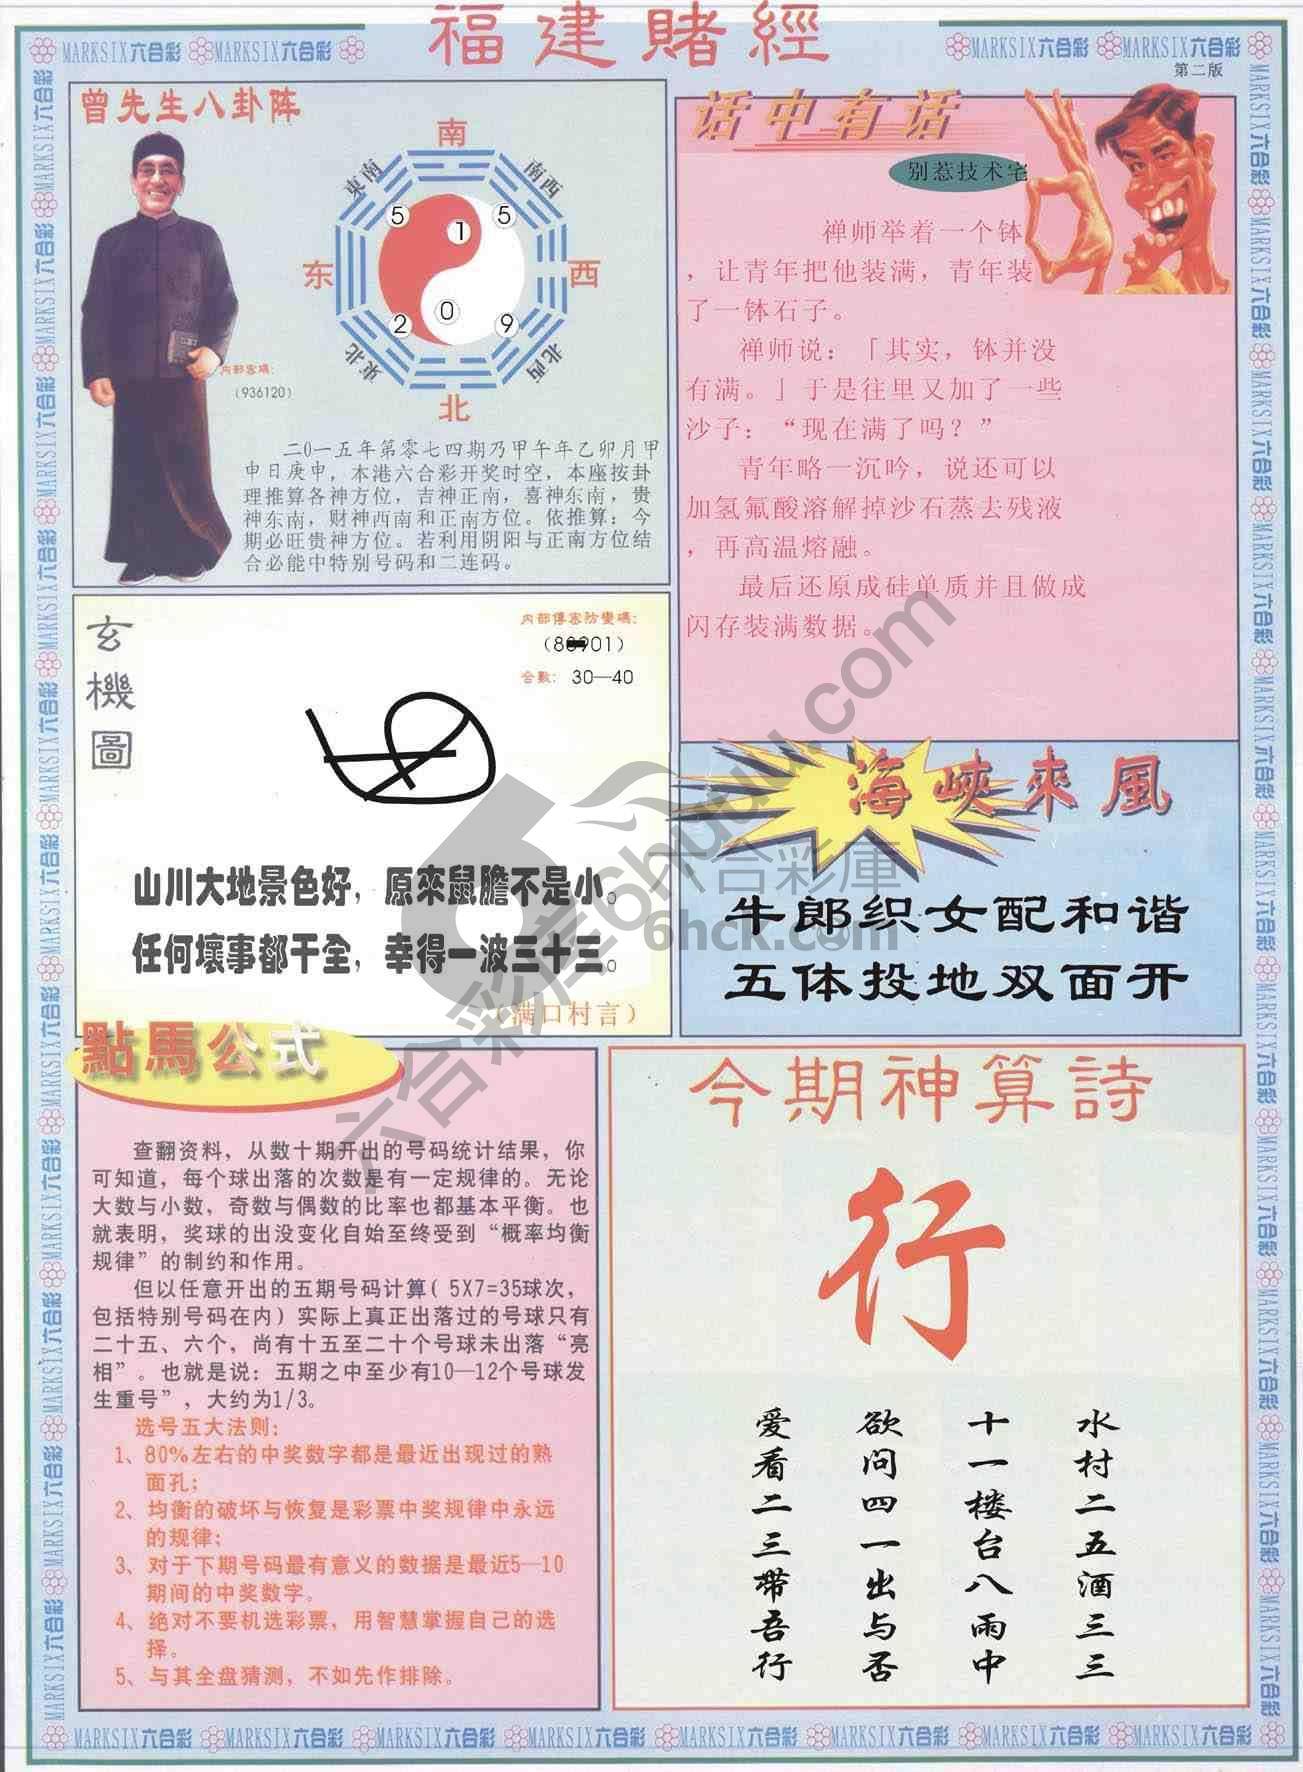 福建賭經
MARKSIX六合彩 MARKSIX六合彩
MARKSIX六合彩 MARKSIX六合彩
第二版
曾先生八卦阵
南
東南
南西
5
1
5
东
西
2
0
9
東北
北西
北
内部密碼:
(936120)
二0一五年第零七四期乃甲午年乙卯月甲
申日庚申，本港六合彩开奖时空，本座按卦
理推算各神方位，吉神正南，喜神东南，贵
神东南，财神西南和正南方位。依推算：今
期必旺贵神方位。若利用阴阳与正南方位结
合必能中特别号码和二连码。
话中有话
别惹技术宅
禅师举着一个钵
，让青年把他装满，青年装
了一钵石子。
禅师说：「其实，钵并没
有满。」于是往里又加了一些
沙子：“现在满了吗？”
青年略一沉吟，说还可以
加氢氟酸溶解掉沙石蒸去残液
，再高温熔融。
最后还原成硅单质并且做成
闪存装满数据。
玄機圖
内部傳密防變碼:
合數: 30—40
山川大地景色好，原來鼠膽不是小。
任何壞事都干全，幸得一波三十三。
（满口村言）
海峽來風
牛郎织女配和谐
五体投地双面开
六合彩庫
6hck.com
六合彩库6huuu.com
點馬公式
查翻资料，从数十期开出的号码统计结果，你
可知道，每个球出落的次数是有一定规律的。无论
大数与小数，奇数与偶数的比率也都基本平衡。也
就表明，奖球的出没变化自始至终受到“概率均衡
规律”的制约和作用。
但以任意开出的五期号码计算( 5X7=35球次，
包括特别号码在内) 实际上真正出落过的号球只有
二十五、六个，尚有十五至二十个号球未出落“亮
相”。也就是说：五期之中至少有10—12个号球发
生重号”，大约为1/3。
选号五大法则：
1、80%左右的中奖数字都是最近出现过的熟
面孔；
2、均衡的破坏与恢复是彩票中奖规律中永远
的规律；
3、对于下期号码最有意义的数据是最近5—10
期间的中奖数字。
4、绝对不要机选彩票，用智慧掌握自己的选
择。
5、与其全盘猜测，不如先作排除。
今期神算詩
行
水村二五酒三三
十一楼台八雨中
欲问四一出与否
爱看二三带吾行
MARKSIX六合彩 MARKSIX六合彩 MARKSIX六合彩 MARKSIX六合彩 MARKSIX六合彩 MARKSIX六合彩 MARKSIX六合彩 MARKSIX六合彩